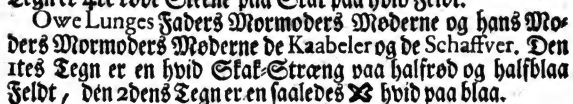 Tegn er 4re røde Steene paa Skaf paa hvid Feldt.
Owe Lunges Faders Mormoders Møderne og hans Mo-
ders Mormoders Møderne de Kaabeler og de Schaffver. Den
1tes Tegn er en hvid Skak-Stræng paa halfrød og halfblaa
Feldt, den 2dens Tegn er en saaledes hvid paa blaa.